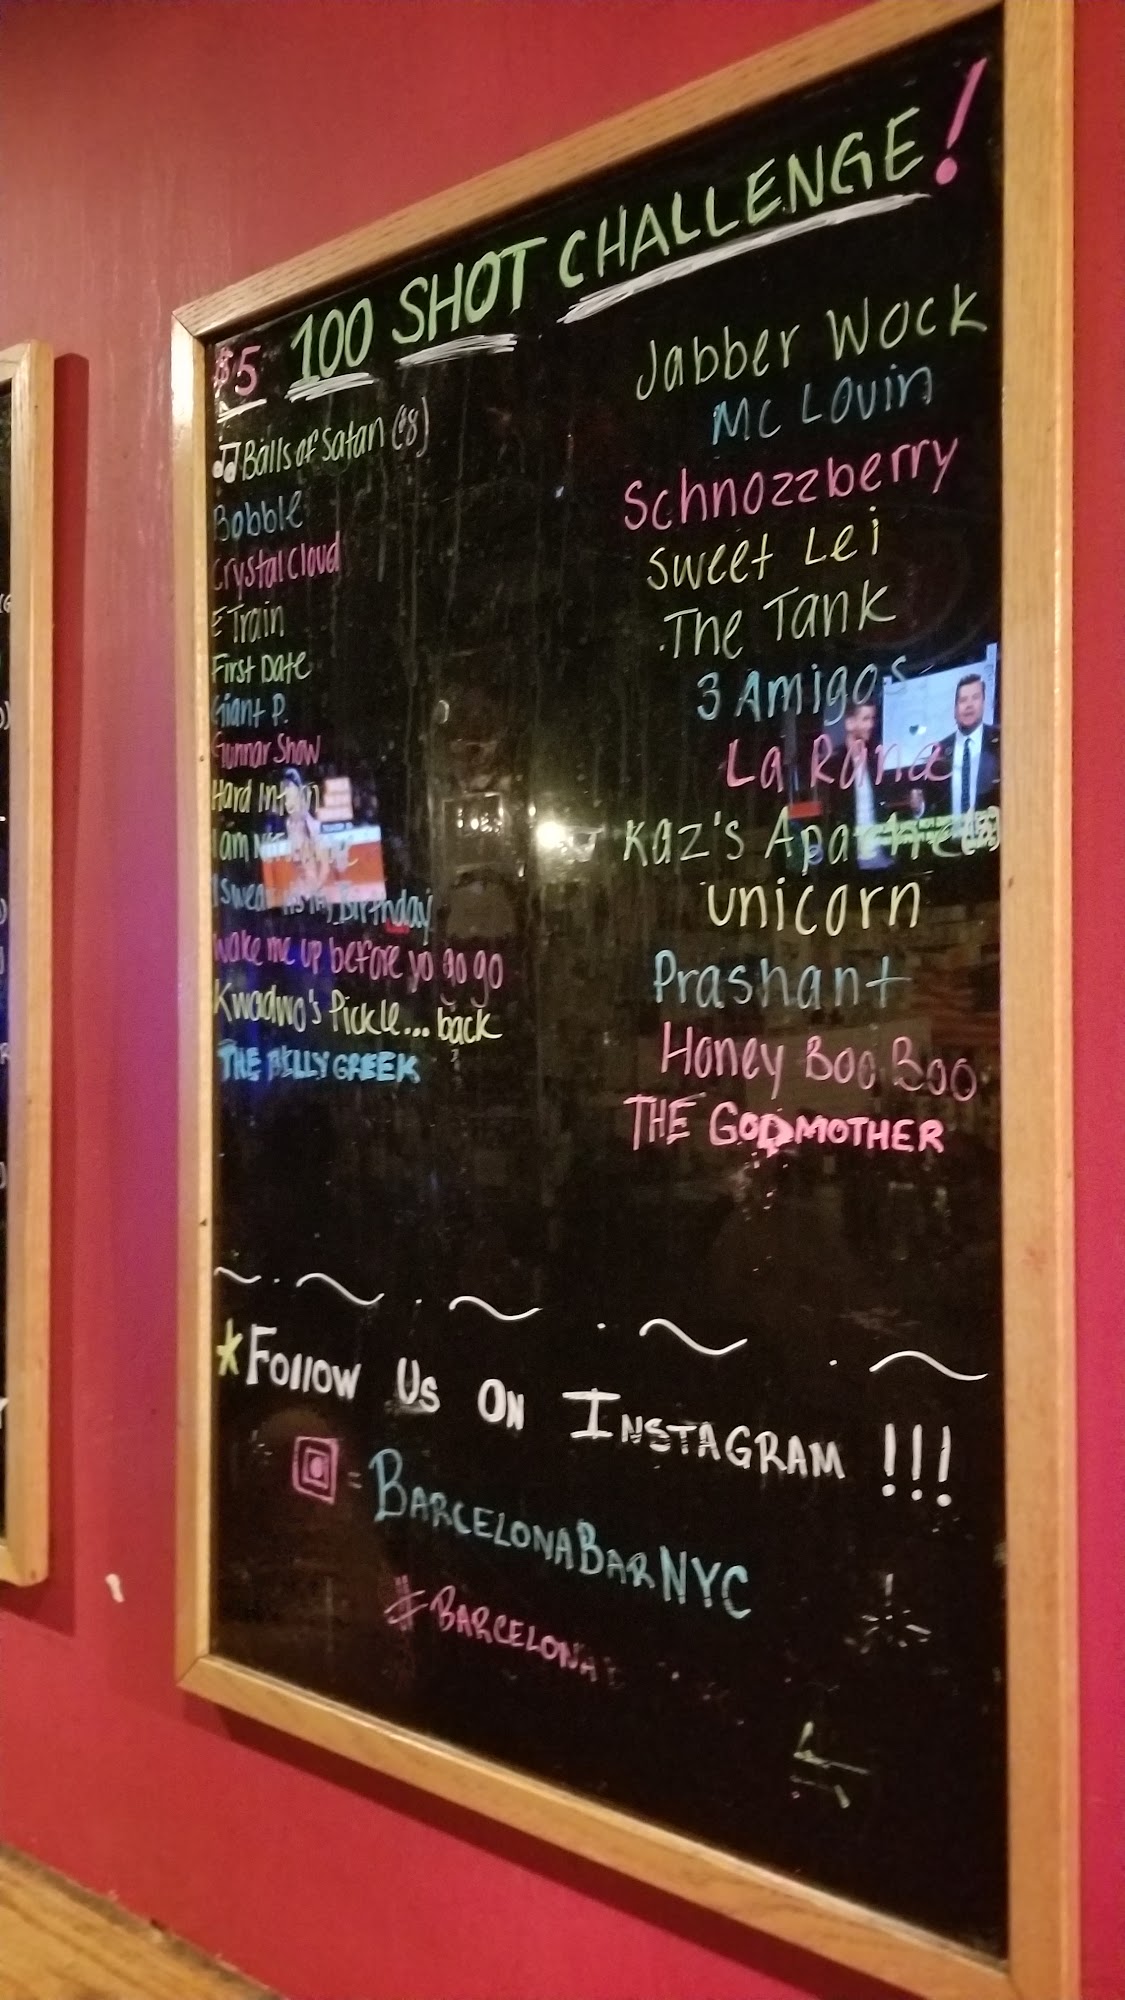 100 SHOT CHALLENGE!
$5
Balls of Satan ($8)
Bobble
Crystal Cloud
E Train
First Date
Giant P.
Gunnar Show
Hard Intern
I am Not
I Swear its my Birthday
Wake me up before yo go go
Kwadwo's Pickle... back
THE BILLY GREEK
Jabber Wock
Mc Lovin
Schnozzberry
Sweet Lei
The Tank
3 Amigos
La Rana
Kaz's Apartment
unicorn
Prashant
Honey Boo Boo
THE GODMOTHER
*FOllOW US ON INSTAGRAM !!!
= BARCELONABARNYC
#BARCELONA